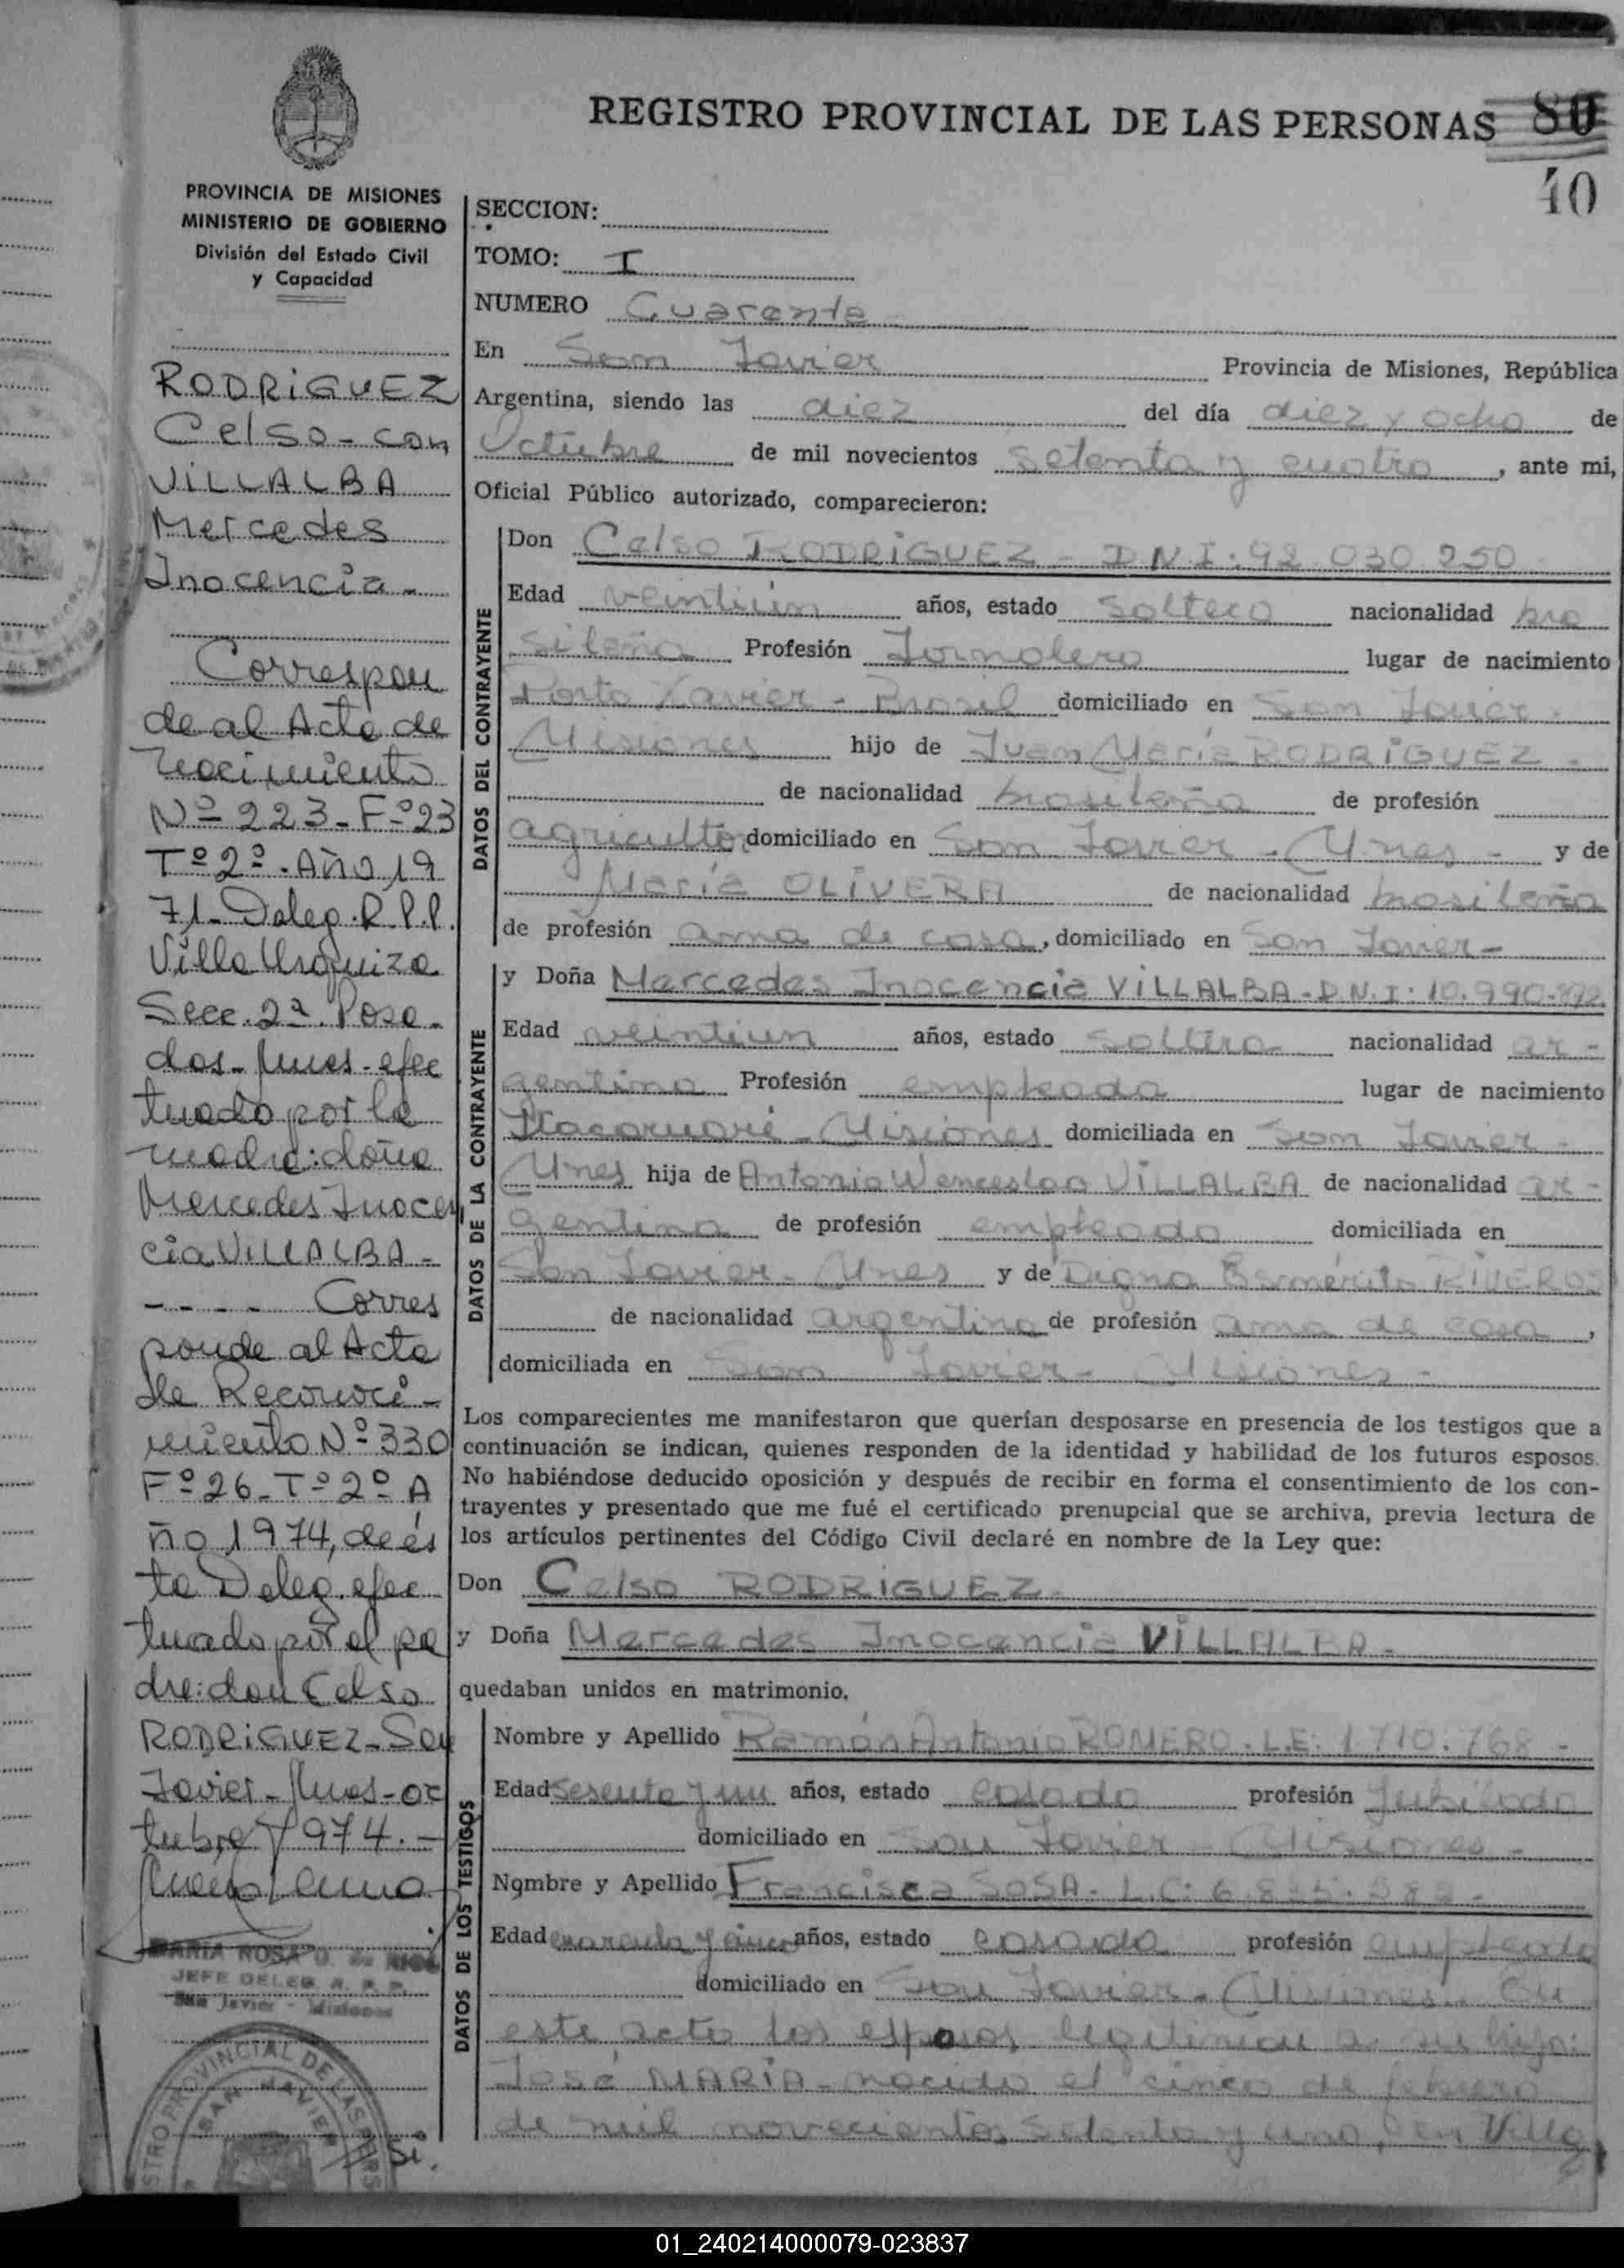 REGISTRO PROVINCIAL DE LAS PERSONAS 80
40
PROVINCIA DE MISIONES
MINISTERIO DE GOBIERNO
División del Estado Civil
y Capacidad
RODRIGUEZ
Celso - con
VILLALBA
Mercedes
Inocencia -
Correspon
de al Acta de
Nacimiento
Nº 223 - Fº 23
Tº 2º - Año 19
71 - Deleg. R.P.P.
Villa Urquiza
Secc. 2ª. Posa-
das - Mnes - efec
tuado por la
madre: doña
Mercedes Inocen
cia VILLALBA -
- - - - Corres
ponde al Acta
de Reconoci-
miento Nº 330
Fº 26 - Tº 2º A
ño 1974, de és
ta Deleg. efec
tuado por el pa
dre: don Celso
RODRIGUEZ - San
Javier - Mnes - oc
tubre 1974. -
MARIA ROSA
JEFE DELEG. R. P. P.
San Javier - Misiones
SAN JAVIER
SECCION:
TOMO: I
NUMERO Cuarenta
En San Javier Provincia de Misiones, República
Argentina, siendo las diez del día diez y ocho de
Octubre de mil novecientos setenta y cuatro, ante mi,
Oficial Público autorizado, comparecieron:
DATOS DEL CONTRAYENTE
Don Celso RODRIGUEZ - D.N.I: 92.030.250
Edad veintiún años, estado soltero nacionalidad bra
sileña Profesión Jornalero lugar de nacimiento
Porto Xavier - Brasil domiciliado en San Javier -
Misiones hijo de Juan María RODRIGUEZ -
de nacionalidad brasileña de profesión
agricultor domiciliado en San Javier - Mnes - y de
María OLIVERA de nacionalidad brasileña
de profesión ama de casa, domiciliado en San Javier -
DATOS DE LA CONTRAYENTE
y Doña Mercedes Inocencia VILLALBA - D.N.I: 10.990.892
Edad veintiun años, estado soltera nacionalidad ar -
gentina Profesión empleada lugar de nacimiento
Itacaruaré - Misiones domiciliada en San Javier -
Mnes hija de Antonio Wenceslao VILLALBA de nacionalidad ar -
gentina de profesión empleado domiciliada en
San Javier - Mnes y de Digna Esmérita RIVEROS
de nacionalidad argentina de profesión ama de casa,
domiciliada en San Javier - Misiones -
Los comparecientes me manifestaron que querían desposarse en presencia de los testigos que a
continuación se indican, quienes responden de la identidad y habilidad de los futuros esposos.
No habiéndose deducido oposición y después de recibir en forma el consentimiento de los con-
trayentes y presentado que me fué el certificado prenupcial que se archiva, previa lectura de
los artículos pertinentes del Código Civil declaré en nombre de la Ley que:
Don Celso RODRIGUEZ -
y Doña Mercedes Inocencia VILLALBA -
quedaban unidos en matrimonio.
DATOS DE LOS TESTIGOS
Nombre y Apellido Ramón Antonio ROMERO - L.E: 1.710.768 -
Edad sesenta y un años, estado casado profesión jubilado
domiciliado en San Javier - Misiones -
Nombre y Apellido Francisca SOSA - L.C:
Edad cuarenta y cinco años, estado casada profesión empleada
domiciliado en San Javier - Misiones. En
este acto los esposos legitiman a su hijo:
José MARÍA - nacido el cinco de febrero
de mil novecientos setenta y uno, en Villa
Si.
01_240214000079-023837